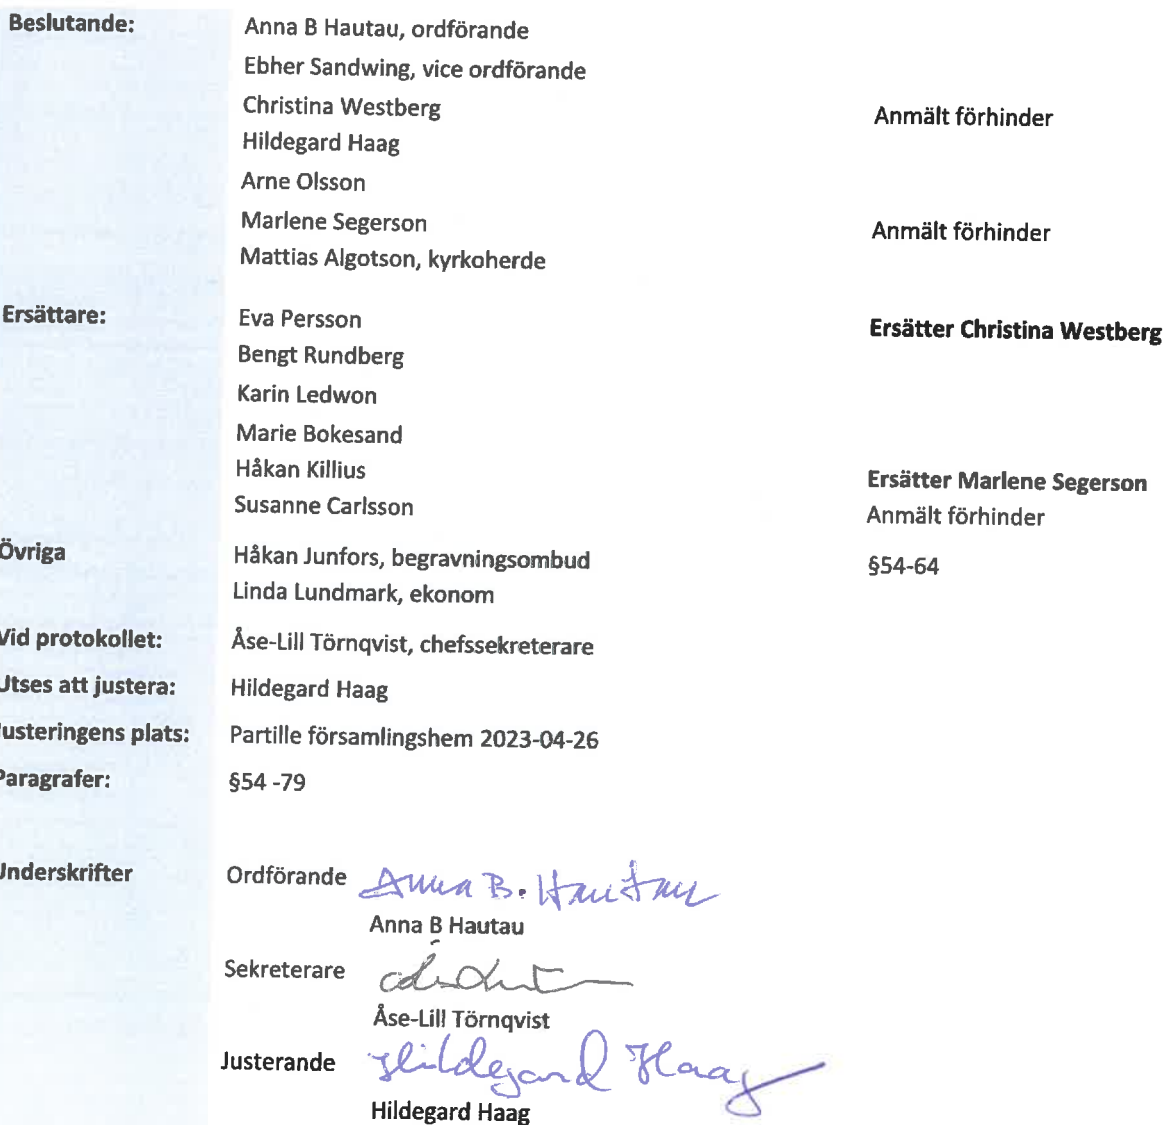 Beslutande: Anna B Hautau, ordförande
Ebher Sandwing, vice ordförande
Christina Westberg Anmält förhinder
Hildegard Haag
Arne Olsson
Marlene Segerson Anmält förhinder
Mattias Algotson, kyrkoherde
Ersättare: Eva Persson Ersätter Christina Westberg
Bengt Rundberg
Karin Ledwon
Marie Bokesand
Håkan Killius Ersätter Marlene Segerson
Susanne Carlsson Anmält förhinder
Övriga Håkan Junfors, begravningsombud §54-64
Linda Lundmark, ekonom
Vid protokollet: Åse-Lill Törnqvist, chefssekreterare
Utses att justera: Hildegard Haag
Justeringens plats: Partille församlingshem 2023-04-26
Paragrafer: §54 -79
Underskrifter Ordförande Anna B. Hautau
Anna B Hautau
Sekreterare
Åse-Lill Törnqvist
Justerande Hildegard Haag
Hildegard Haag